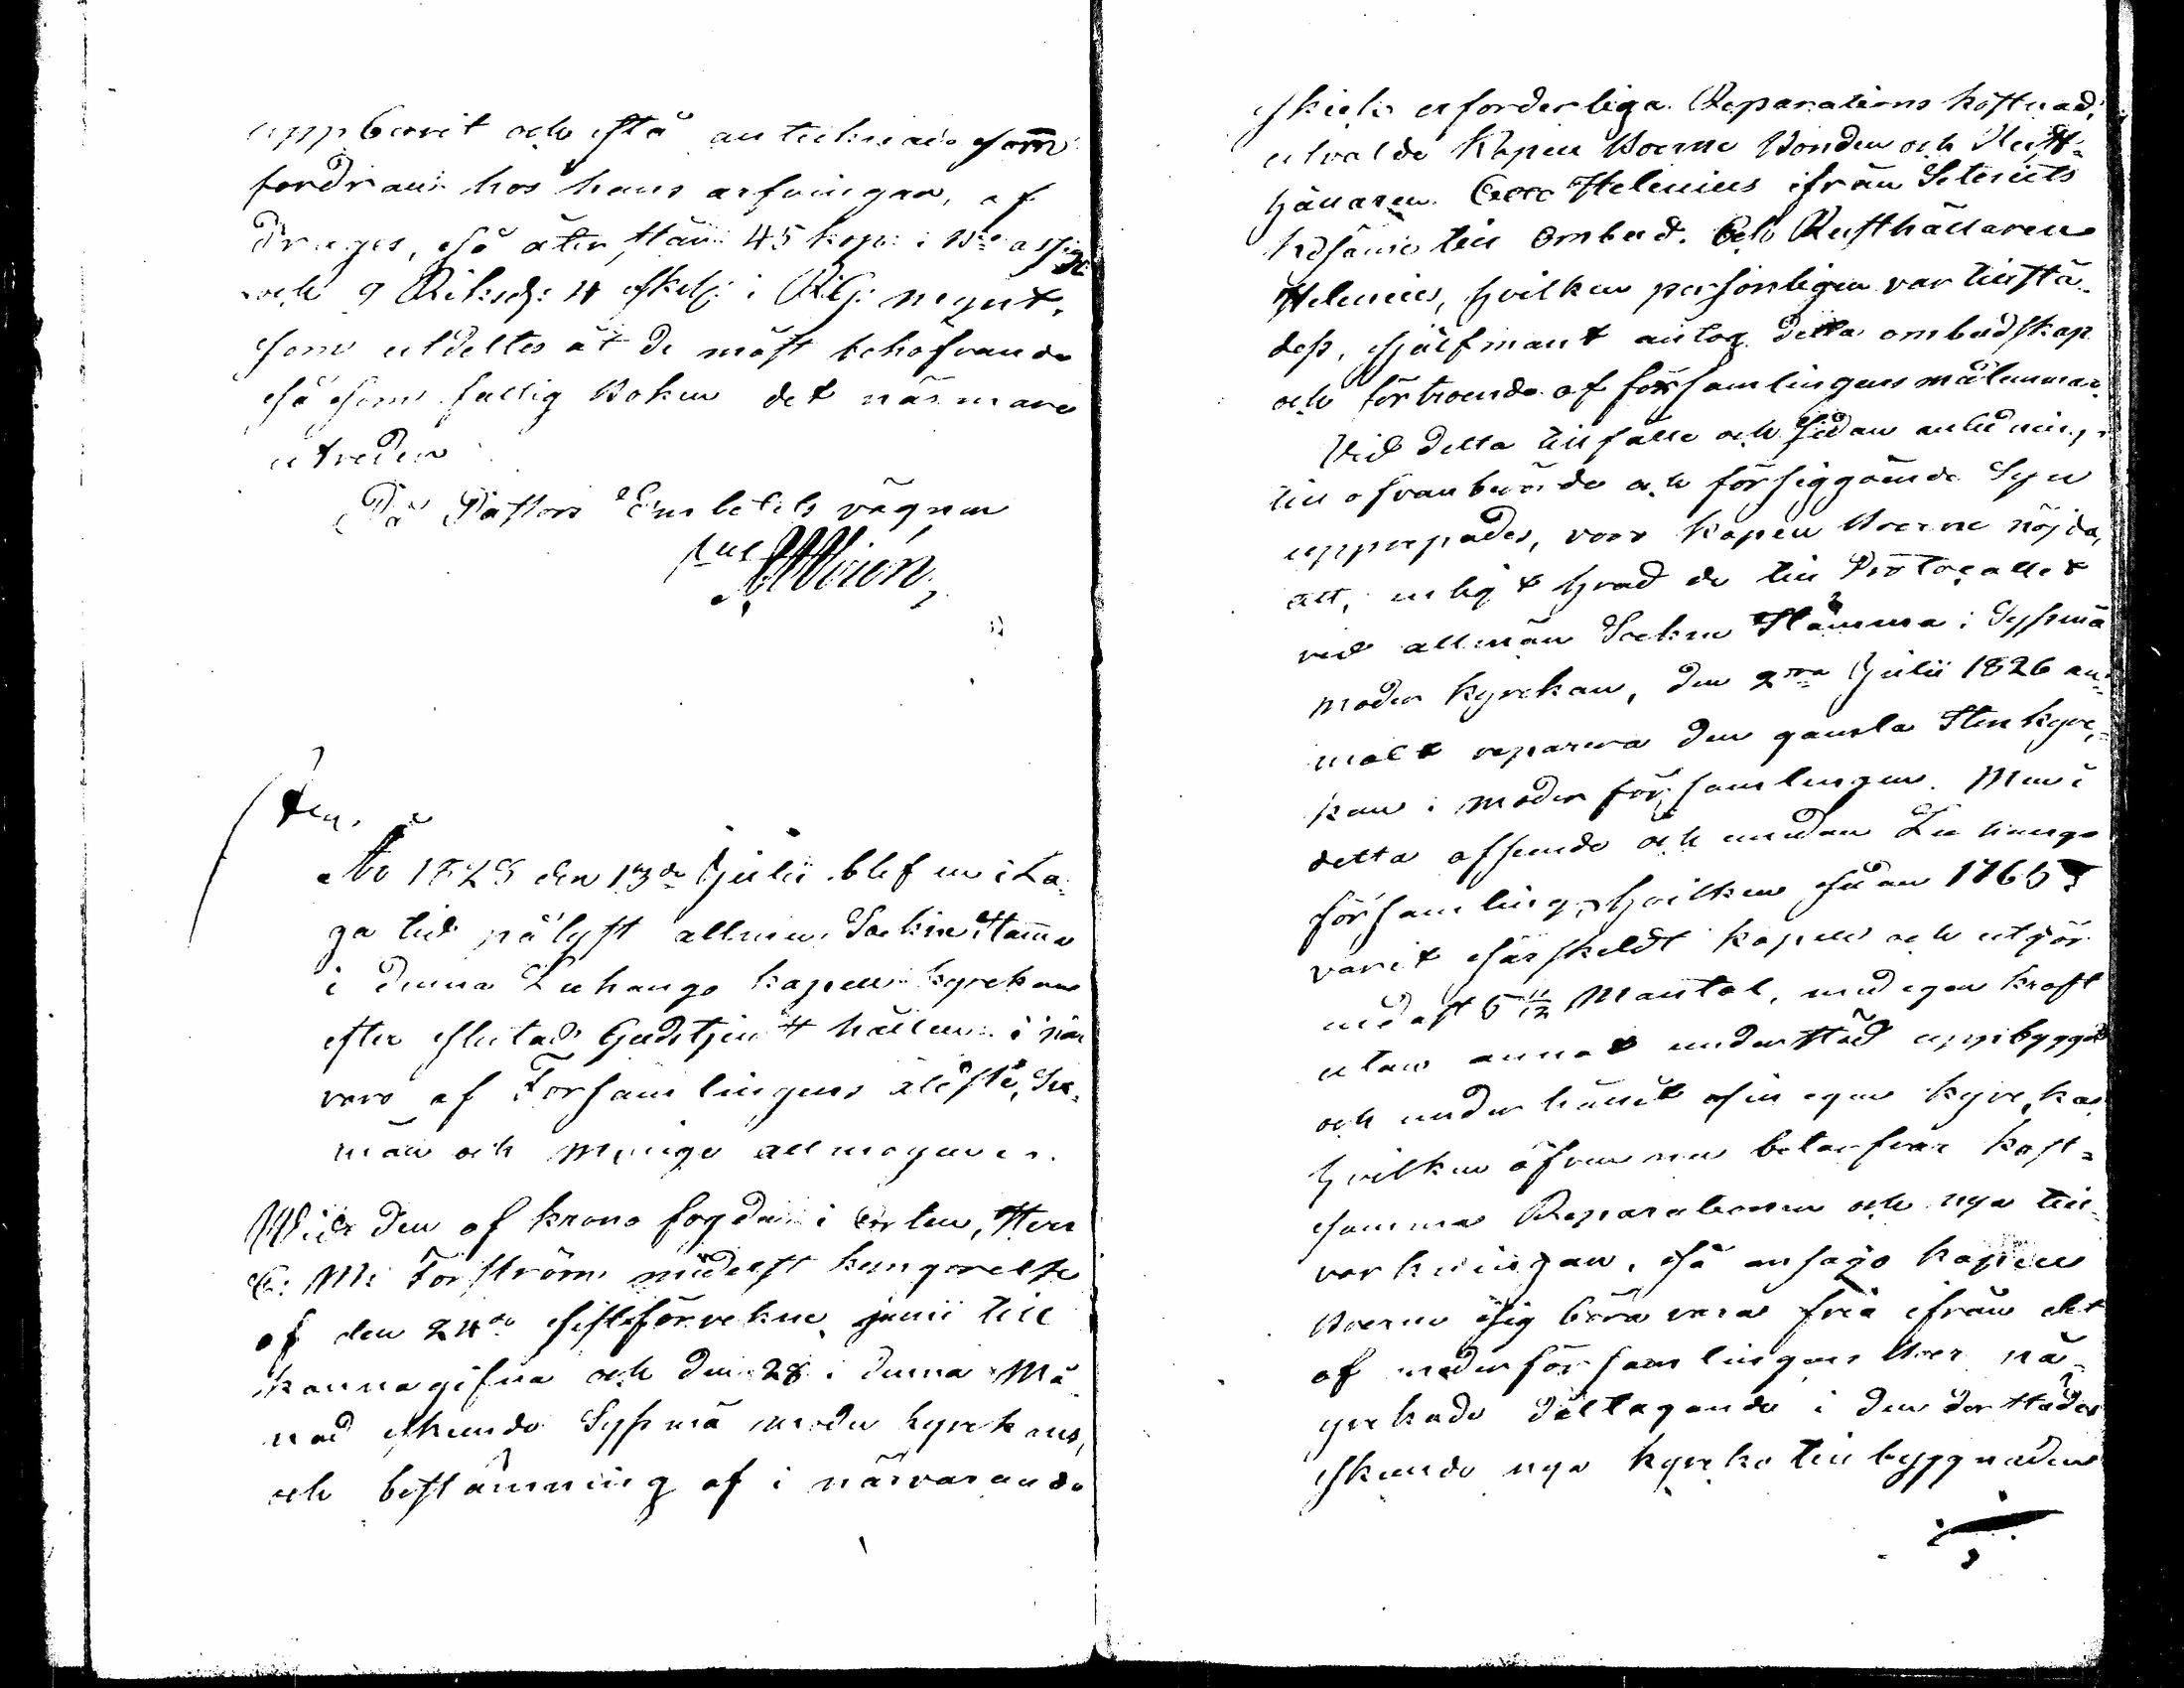 uppburit och stå antecknade som
fordran hos hans arfvingar, af
drages, så åter stån 45 kop: i Bco assign:
och 9 Riksd: 4 skill: i Rg: mynt,
som utdeltes åt de mäst behöfvande
så som fattig Boken det närmare
utreder.
På Pastors Embetets vägnar

År 1828 den 13de Julii blef en i La-
ga tid pålyst allmän Sockne Stämma
i denna Luhango kapell kyrckan
efter slutad Gudstjenst hållen i när
varo af Församlingens äldste, Sex-
män och menige allmogen.
Wid den af krono fogden i Orten, Herr
C: M: Forström medelst kungörelse
af den 24de sistförvekne junii till
kännagifna och den 28 i denna Må
nad skeende Syssmä moder kyrckans,
och bestämning af i närvarande
skick erforderliga Reparations kostnad,
utvalde Kapell Boerne Bonden och Rust-
hållaren Helenius ifrån
till Ombud. Och Rusthållaren
Helenius, hvilken personligen var tillstä-
des, sjelfmant antog detta ombudskap
och förtroende af församlingens målsmän.
Vid detta tillfälle och sedan anledning
till ofvanberörde och försiggående Syn
upprepades, voro kapell Boerne nöjda,
att, enligt hvad de till Protocollet
vid allmän Sockne Stämma i Syssmä
moder kyrckan, den 2dra Julii 1826 an-
mält reparera den gamla Stenkyrc-
kan i moder församlingen. Men i
detta afseende och emedan Luhango
församling, hvilken sedan 1765
varit särskildt kapell och utgör
endast 5 11/12 Mantal, med egen kraft
utan annat understöd uppbyggt
och underhållit sin egen kyrcka
hvilken äfven nu betarfvar kost-
samma Reparationer och nya till-
verkningar, så ansågo kapell
Boerne sig böra vara fria ifrån det
af moderförsamlingens Boer på-
yrkade deltagande i den derstädes
skeende nya kyrko tillbyggnaden